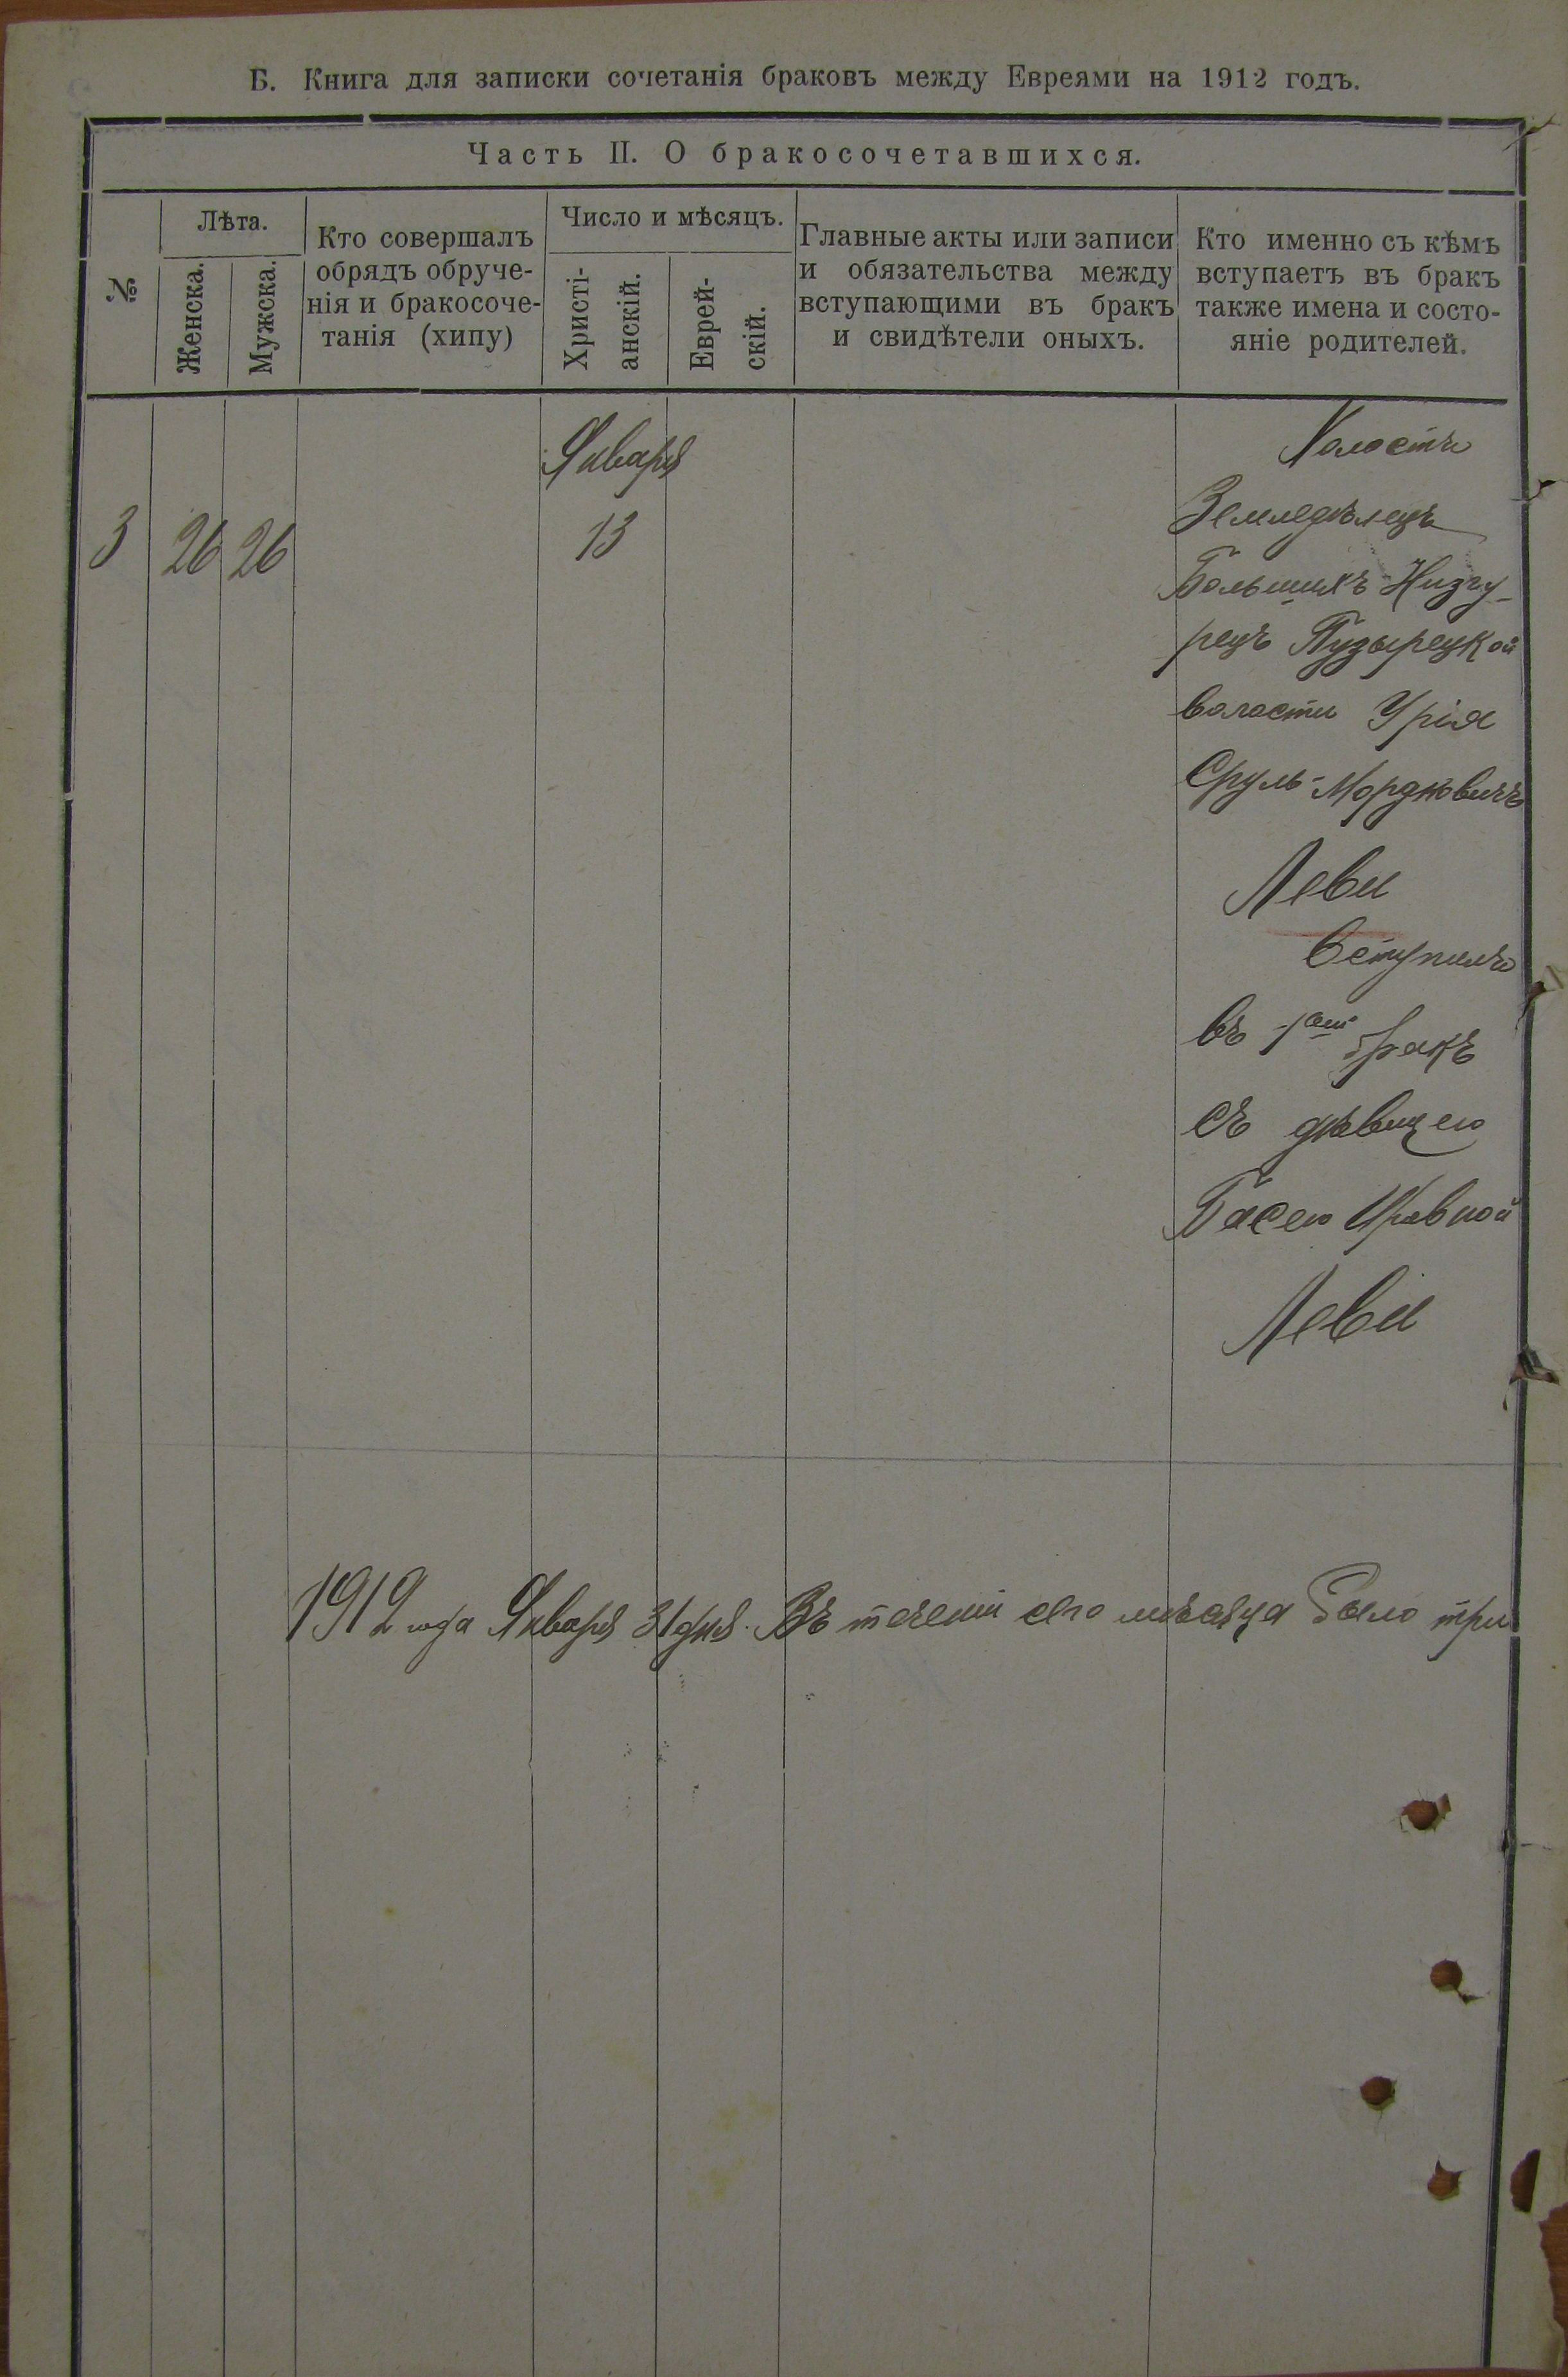 Б. Книга для записки сочетанія браковъ между Евреями на 1912 годъ.
Часть II. О бракосочетавшихся.
№
Лѣта.
Женска.
Мужска.
Кто совершалъ
обрядъ обруче-
нія и бракосоче-
танія (хипу)
Число и мѣсяцъ.
Христі-
анскій.
Еврей-
скій.
Главные акты или записи
и обязательства между
вступающими въ бракъ
и свидѣтели оныхъ.
Кто именно съ кѣмъ
вступаетъ въ бракъ
также имена и состо-
яніе родителей.
3 26 26
Января
13
Холостъ
Земледѣлецъ
Большихъ-Низгу-
рецъ Пузырецкой
волости Урія
Сруль-Мордковичъ
Леви
Вступилъ
въ 1ый бракъ
съ дѣвицею
Басею
Леви
1912 года Января 31 дня. Въ теченіи сего мѣсяца было три